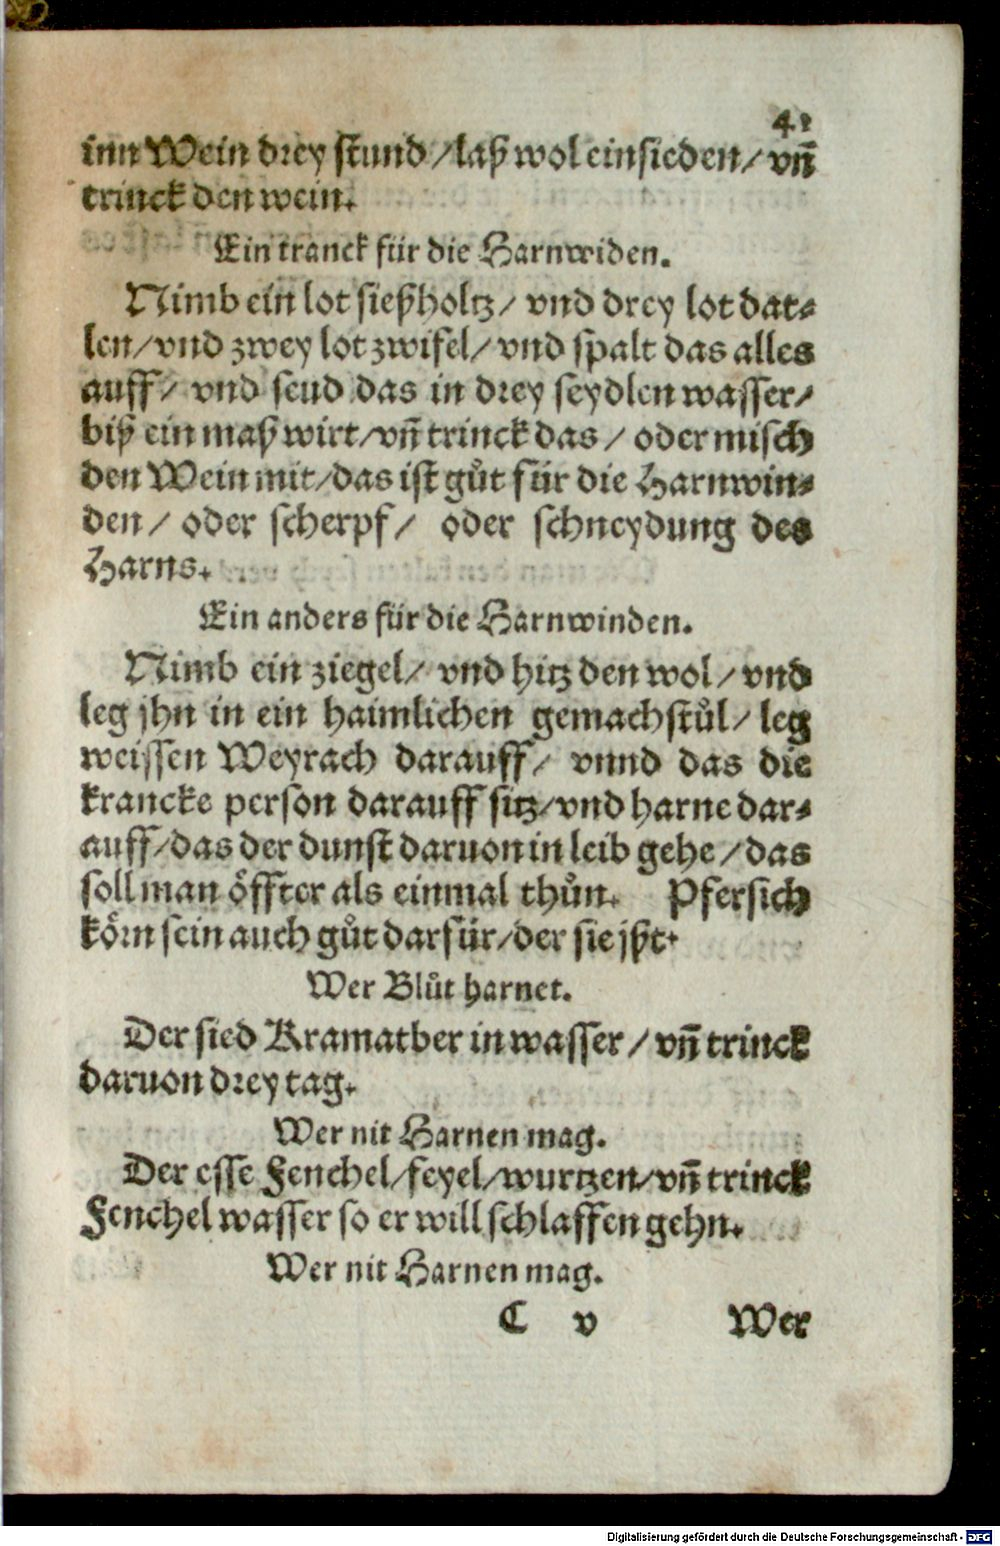 41
inn Wein drey stund / laß wol einsieden / vñ
trinck den wein.
Ein tranck für die Harnwiden.
Nimb ein lot sießholtz / vnd drey lot dat-
len / vnd zwey lot zwifel / vnd spalt das alles
auff / vnd seud das in drey seydlen wasser /
biß ein maß wirt / vñ trinck das / oder misch
den Wein mit / das ist gůt für die Harnwin-
den / oder scherpf / oder schneydung des
Harns.
Ein anders für die Harnwinden.
Nimb ein ziegel / vnd hitz den wol / vnd
leg jhn in ein haimlichen gemachstůl / leg
weissen Weyrach darauff / vnnd das die
krancke person darauff sitz / vnd harne dar-
auff / das der dunst daruon in leib gehe / das
soll man öffter als einmal thůn. Pfersich
körn sein auch gůt darfür / der sie jßt.
Wer Blůt harnet.
Der sied Kramatber in wasser / vñ trinck
daruon drey tag.
Wer nit Harnen mag.
Der esse Fenchel / feyel / wurtzen / vñ trinck
Fenchel wasser so er will schlaffen gehn.
Wer nit Harnen mag.
C v Wer
Digitalisierung gefördert durch die Deutsche Forschungsgemeinschaft - DFG